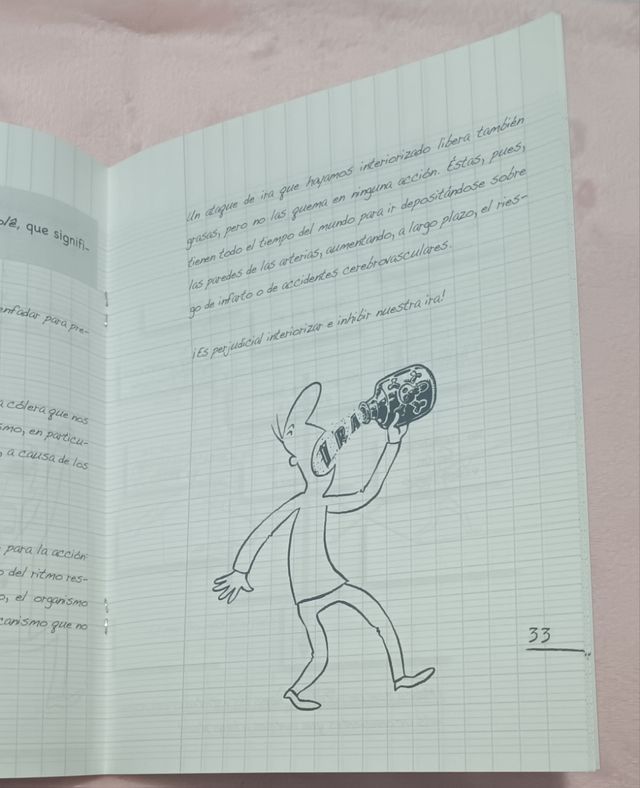 que signifi-
enfadar para pre-
a cólera que nos
smo, en particu-
, a causa de los
para la acción:
del ritmo res-
o, el organismo
canismo que no
Un ataque de ira que hayamos interiorizado libera también
grasas, pero no las quema en ninguna acción. Éstas, pues,
tienen todo el tiempo del mundo para ir depositándose sobre
las paredes de las arterias, aumentando, a largo plazo, el ries-
go de infarto o de accidentes cerebrovasculares.
¡Es perjudicial interiorizar e inhibir nuestra ira!
IRA
33